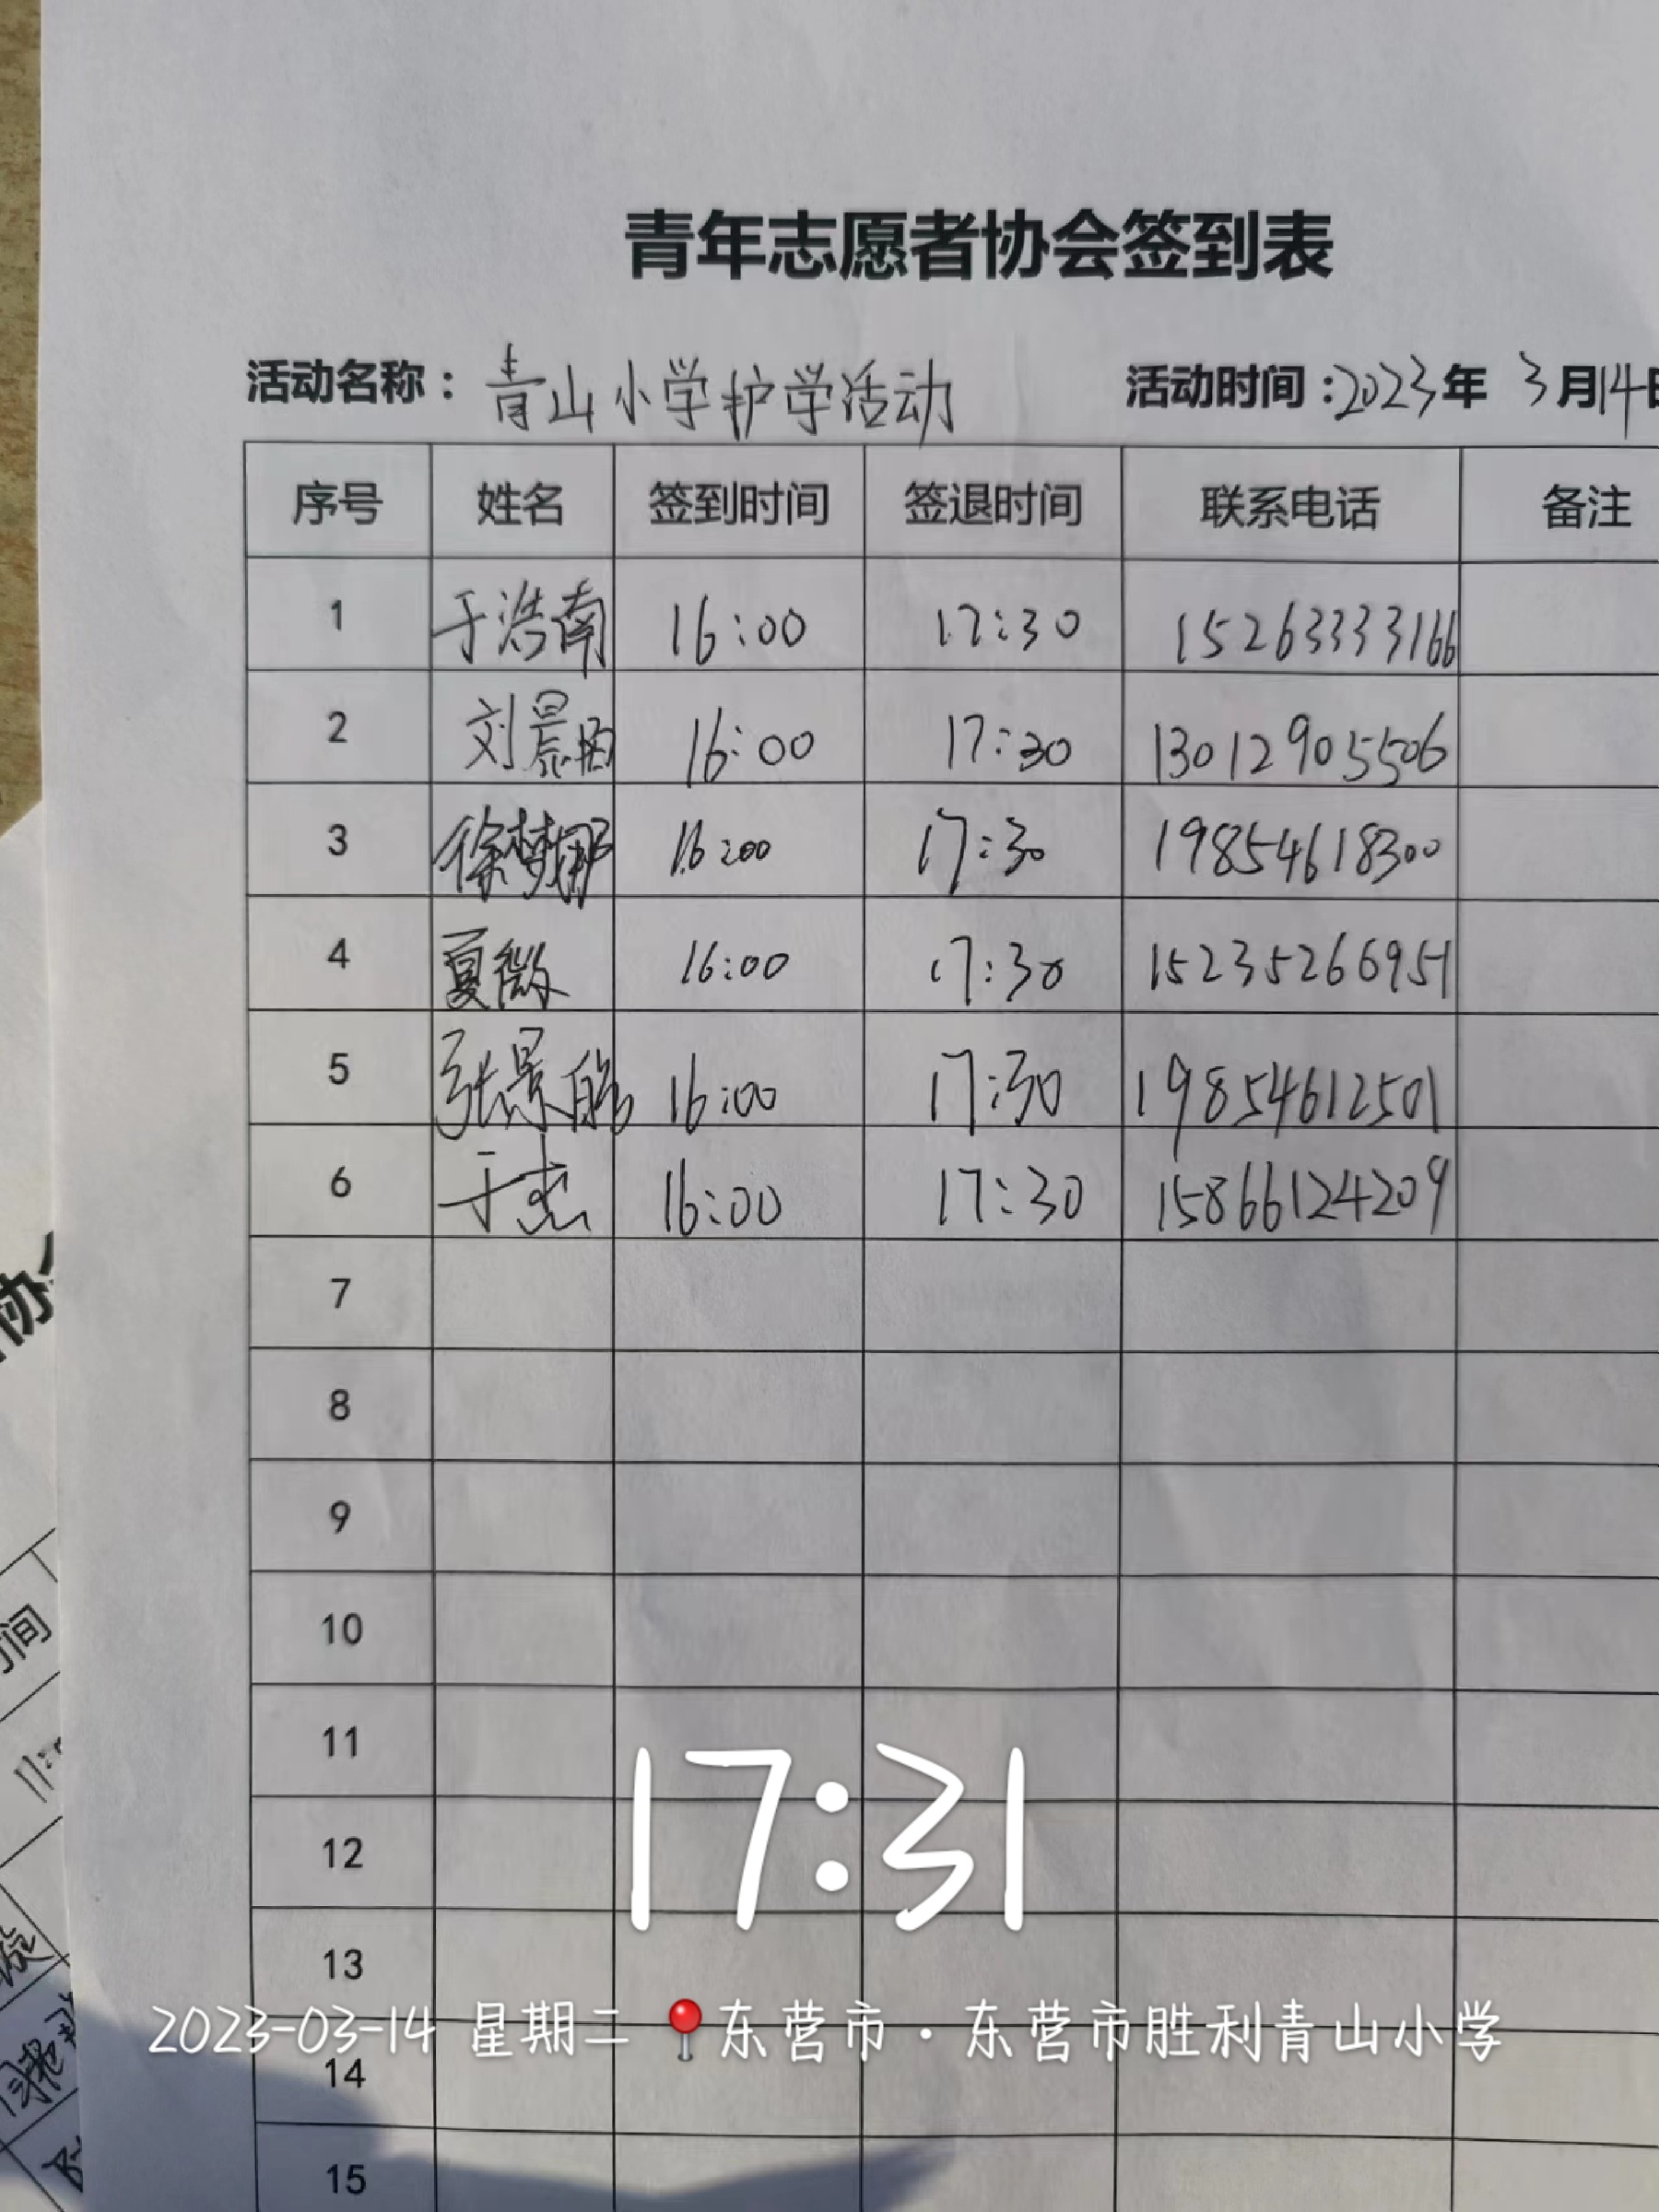 青年志愿者协会签到表
活动名称：青山小学护学活动 活动时间：2023年 3月14日
序号 姓名 签到时间 签退时间 联系电话 备注
1 于浩南 16:00 17:30 15263333166
2 刘晨 16:00 17:30 13012905506
3 徐梦娜 16:00 17:30 19854618300
4 夏微 16:00 17:30 15235266951
5 张景皓 16:00 17:30 19854612501
6 于杰 16:00 17:30 15866124209
7
8
9
10
11
12
13
14
15
17:31
2023-03-14 星期二 东营市·东营市胜利青山小学
协
间